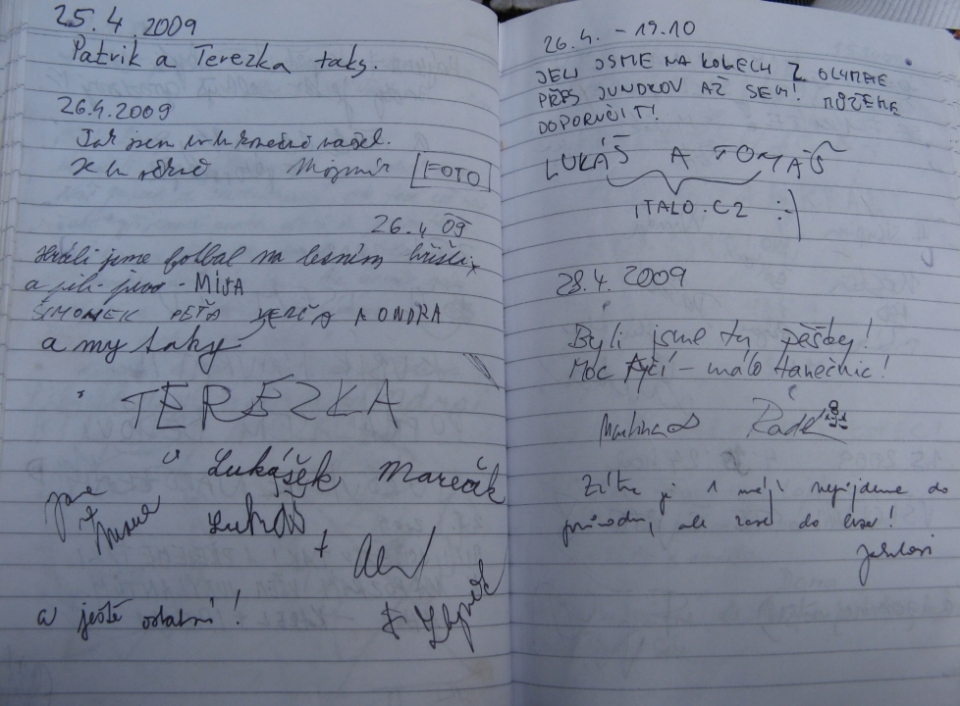 25.4.2009
Patrik a Terezka taky.
26.4.2009
Tak jsem to tu konečně našel.
Mojmír [FOTO]
26.4 09
Hráli jsme fotbal na lesním hřišti
a pili pivo - MÍŠA
ŠIMONEK PEŤA VERČA A ONDRA
a my taky
TEREZKA
Lukášek Mareček
Lukáš
+
a ještě ostatní!
& Zbyněk
26.4. - 19.10
JELI JSME NA KOLECH Z OLOMOUCE
PŘES JUNDROV AŽ SEM! MŮŽEME
DOPORUČIT!
LUKÁŠ A TOMÁŠ
ITALO.CZ :-)
28.4.2009
Byli jsme tu pěšky!
Moc tyčí - málo tanečnic!
Martina Radek
Zítra je 1 máj nepůjdeme do
průvodu, ale zase do lesa!